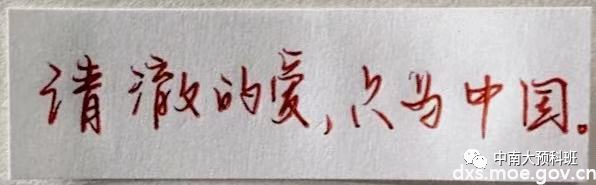 清澈的爱,只为中国。
中南大预科班
dxs.moe.gov.cn